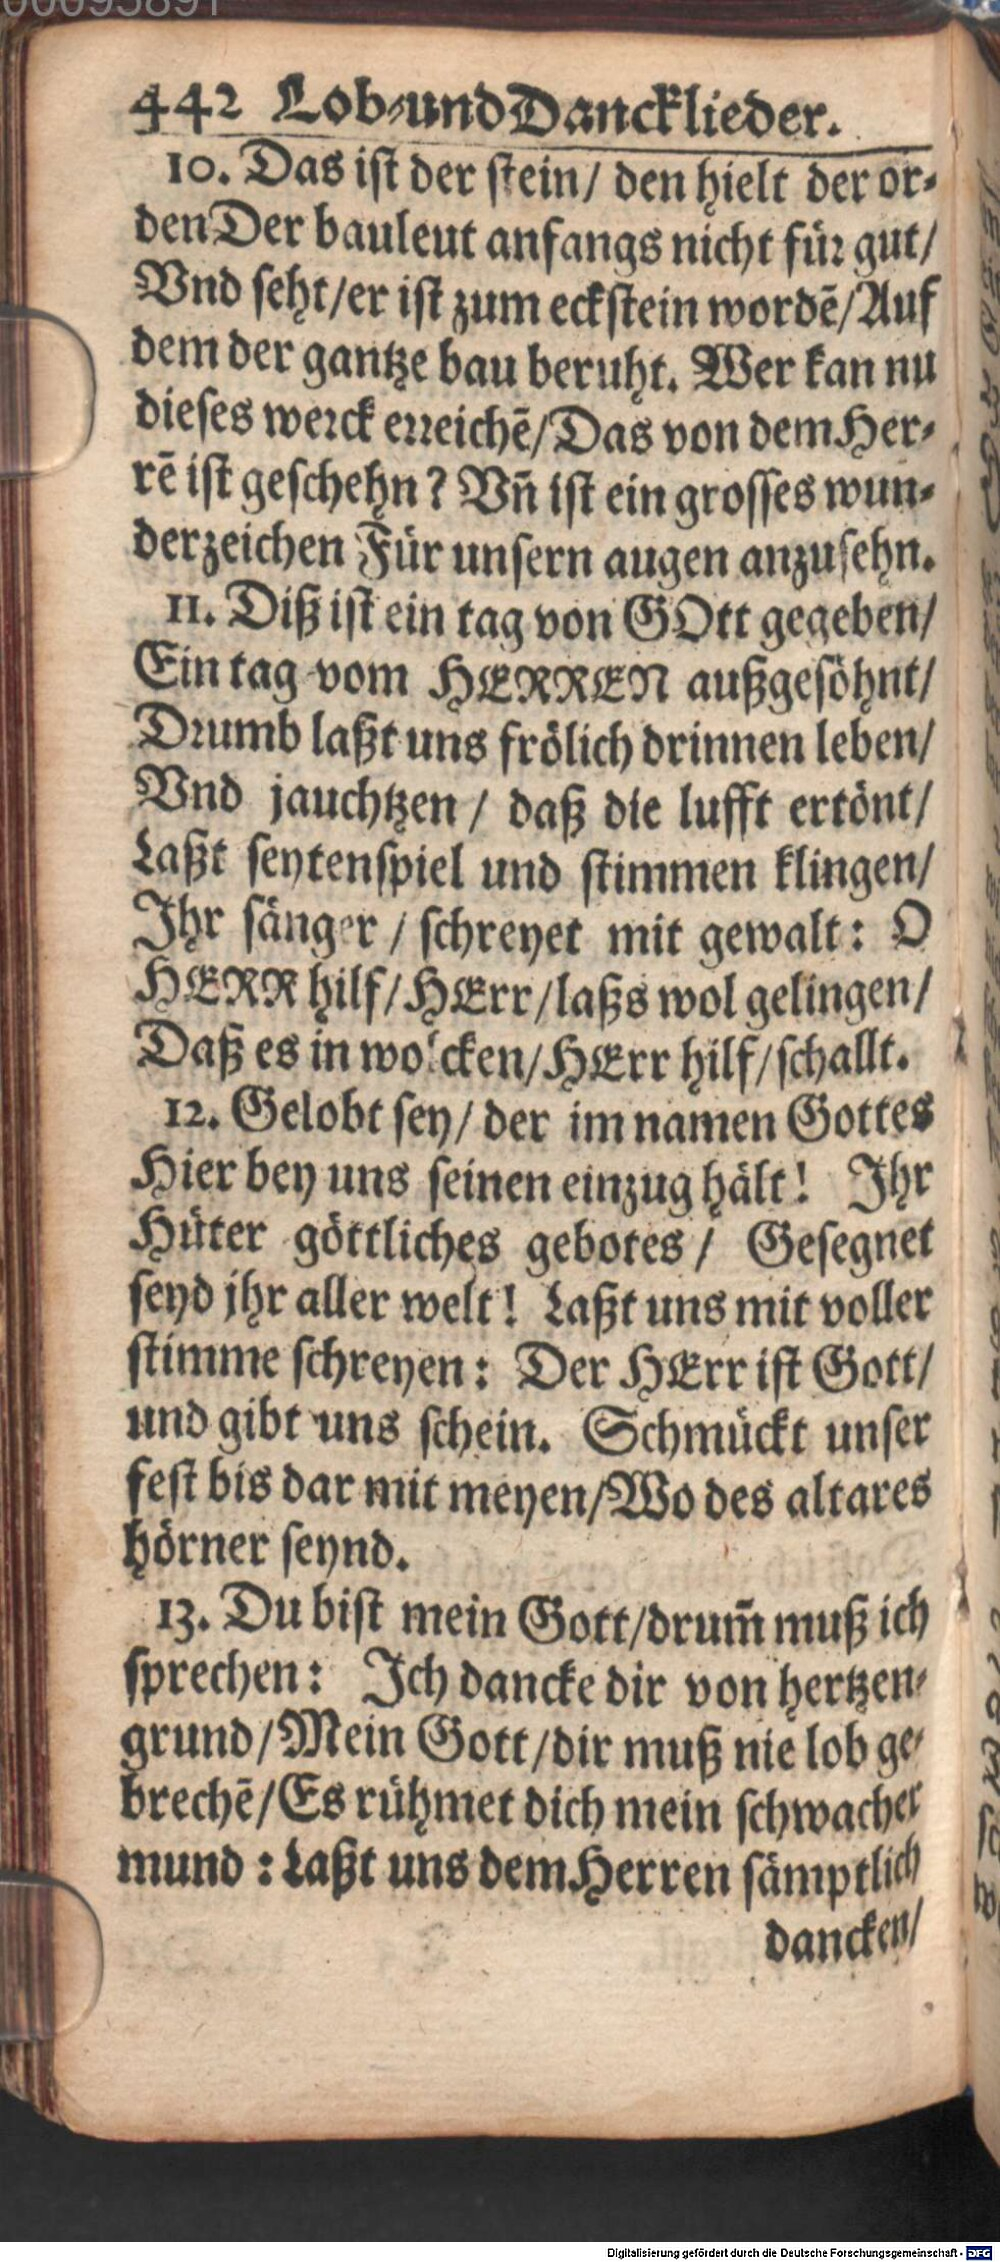 00095891
442 Lob-und Dancklieder.
10. Das ist der stein/ den hielt der or-
den Der bauleut anfangs nicht für gut/
Vnd seht/er ist zum eckstein wordē/Auf
dem der gantze bau beruht. Wer kan nu
dieses werck erreichē/Das von dem Her-
rē ist geschehn? Vñ ist ein grosses wun-
derzeichen Für unsern augen anzusehn.
11. Diß ist ein tag von GOtt gegeben/
Ein tag vom HERREN außgesöhnt/
Drumb laßt uns frölich drinnen leben/
Vnd jauchtzen / daß die lufft ertönt/
Laßt seytenspiel und stimmen klingen/
Ihr sänger / schreyet mit gewalt: O
HERR hilf/HErr/laßs wol gelingen/
Daß es in wolcken/HErr hilf/schallt.
12. Gelobt sey/ der im namen Gottes
Hier bey uns seinen einzug hält! Ihr
Hüter göttliches gebotes / Gesegnet
seyd jhr aller welt! Laßt uns mit voller
stimme schreyen: Der HErr ist Gott/
und gibt uns schein. Schmückt unser
fest bis dar mit meyen/Wo des altares
hörner seynd.
13. Du bist mein Gott/drum̃ muß ich
sprechen: Ich dancke dir von hertzen-
grund/Mein Gott/dir muß nie lob ge-
brechē/Es rühmet dich mein schwacher
mund: Laßt uns dem Herren sämptlich
dancken/
Digitalisierung gefördert durch die Deutsche Forschungsgemeinschaft - DFG